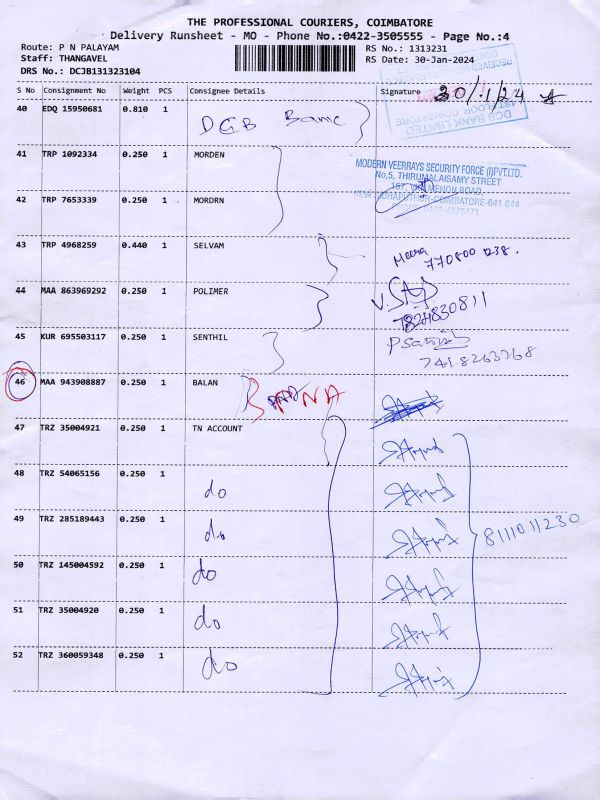 THE PROFESSIONAL COURIERS, COIMBATORE
Delivery Runsheet - MO - Phone No.:0422-3505555 - Page No.:4
Route: P N PALAYAM
Staff: THANGAVEL
DRS No.: DCJB131323104
RS No.: 1313231
RS Date: 30-Jan-2024
S No Consignment No Weight PCS Consignee Details Signature 30/1/24
DCB BANK LIMITED
40 EDQ 15950681 0.810 1 DCB Banc
41 TRP 1092334 0.250 1 MORDEN
MODERN VEERRAYS SECURITY FORCE (I)PVT.LTD.
No,5, THIRUMALAISAMY STREET
42 TRP 7653339 0.250 1 MORDRN
43 TRP 4968259 0.440 1 SELVAM
Meena
770800 1238.
44 MAA 863969292 0.250 1 POLIMER
7824830811
45 KUR 695503117 0.250 1 SENTHIL
7418263768
46 MAA 943908887 0.250 1 BALAN
47 TRZ 35004921 0.250 1 TN ACCOUNT
48 TRZ 54065156 0.250 1 do
49 TRZ 285189443 0.250 1 do
8111011230
50 TRZ 145004592 0.250 1 do
51 TRZ 35004920 0.250 1 do
52 TRZ 360059348 0.250 1 do